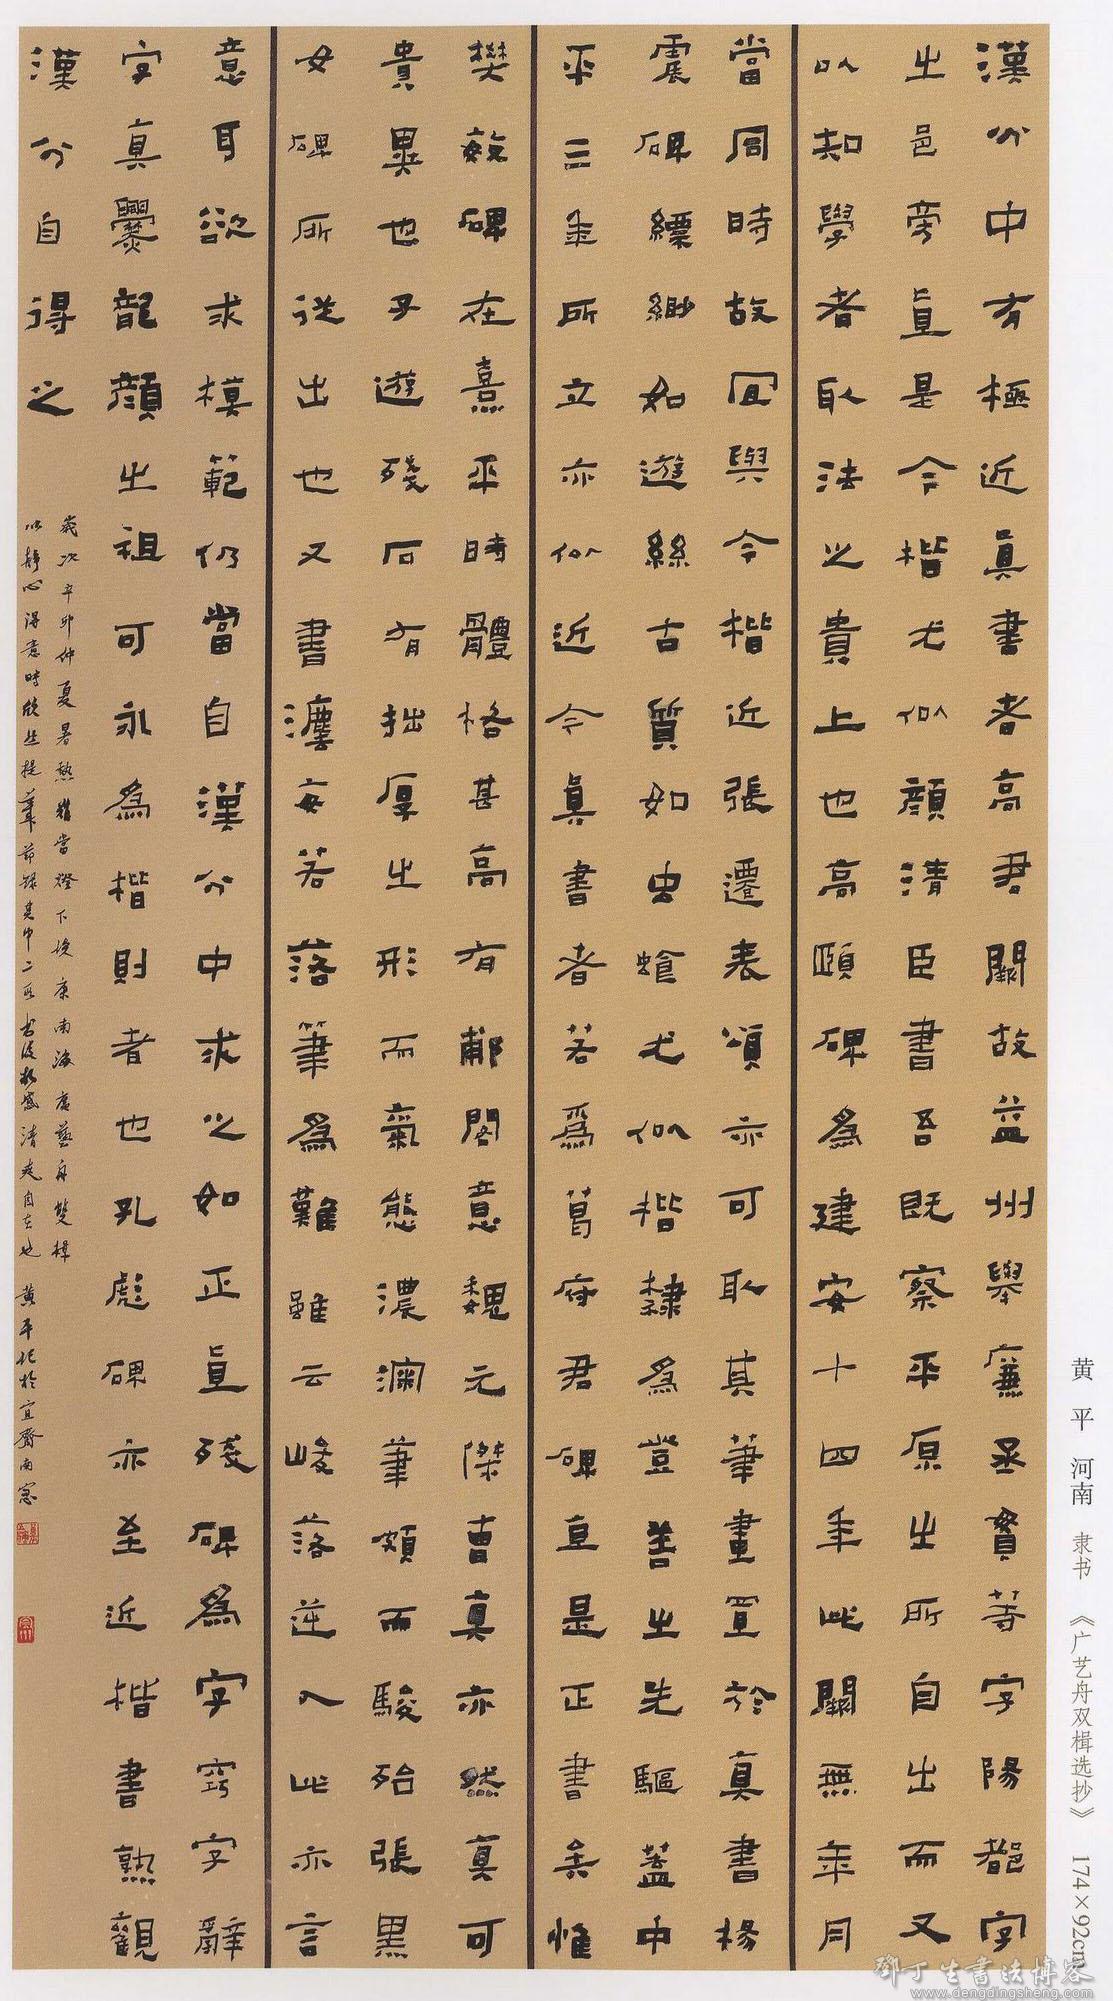 漢分中有極近真書者高君闕故益州舉廉丞貫等字陽都字
之邑旁直是今楷尤似顏清臣書吾既察平原之所自出而又
以知學者取法之貴上也高頤碑為建安十四年此闕無年月
當同時故宜與今楷近張遷表頌亦可取其筆畫置於真書楊
震碑縹緲如遊絲古質如虫蝕尤似楷隸為登善之先驅蓋中
平三年所立亦似近今真書者若爲葛府君碑直是正書矣惟
樊敏碑在熹平時體格甚高有郙閣意魏元傑曹真亦然真可
貴異也子遊殘石有拙厚之形而氣態濃瀾筆頗而駿殆張黑
女碑所從出也又書瀍每若落筆爲難雖云峻落逆入此亦言
意耳欲求模範仍當自漢分中求之如正直殘碑爲字窈字辭
字真爨龍顏之祖可永爲楷則者也孔彪碑亦至近楷書熟觀
漢分自得之
歲次辛卯仲夏暑熱難當燈下讀康南海廣藝舟雙楫
以靜心得意時欣然提筆節錄其中二頁書後頗感清爽自在也 黃平記於宜齋南窗
黄平 河南 隶书 《广艺舟双楫选抄》 174×92cm
鄧丁生書法博客
www.dengdingsheng.com